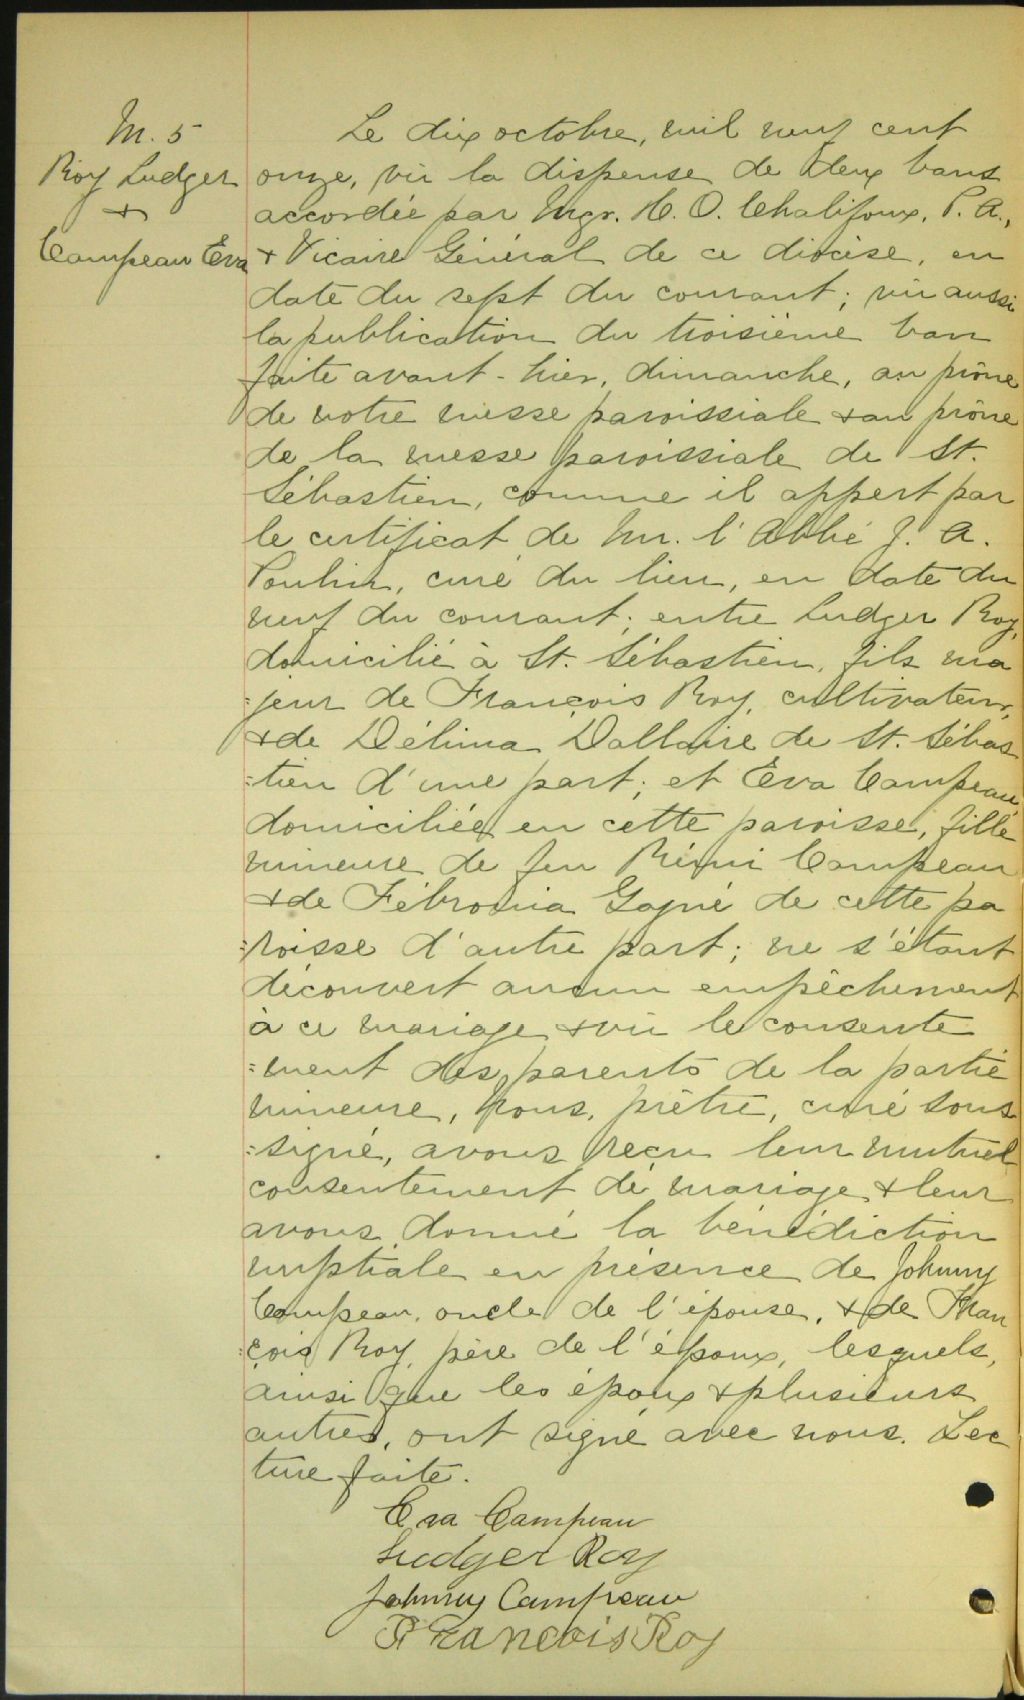 M. 5
Roy Ludger
+
Campeau Eva
Le dix octobre, mil neuf cent
onze, vu la dispense de deux bans
accordée par Mgr. H. O. Chalifoux, P. A.,
& Vicaire Général de ce diocèse, en
date du sept du courant; vu aussi
la publication du troisième ban
faite avant-hier, dimanche, au prône
de notre messe paroissiale & au prône
de la messe paroissiale de St.
Sébastien, comme il appert par
le certificat de Mr. l'Abbé J. A.
Poulin, curé du lieu, en date du
neuf du courant; entre Ludger Roy,
domicilié à St. Sébastien, fils ma
=jeur de François Roy, cultivateur,
& de Délima Dallaire de St. Sébas
=tien d'une part; et Eva Campeau,
domiciliée en cette paroisse, fille
mineure de feu Rémi Campeau
& de Fébronia Gagné de cette pa
=roisse d'autre part; ne s'étant
découvert aucun empêchement
à ce mariage & vu le consente
=ment des parents de la partie
mineure, Nous, prêtre, curé sous
=signé, avons reçu leur mutuel
consentement de mariage & leur
avons donné la bénédiction
nuptiale en présence de Johnny
Campeau, oncle de l'épouse, & de Fran
=çois Roy, père de l'époux, lesquels,
ainsi que les époux & plusieurs
autres, ont signé avec nous. Lec
ture faite.
Eva Campeau
Ludger Roy
Johnny Campeau
Francois Roy